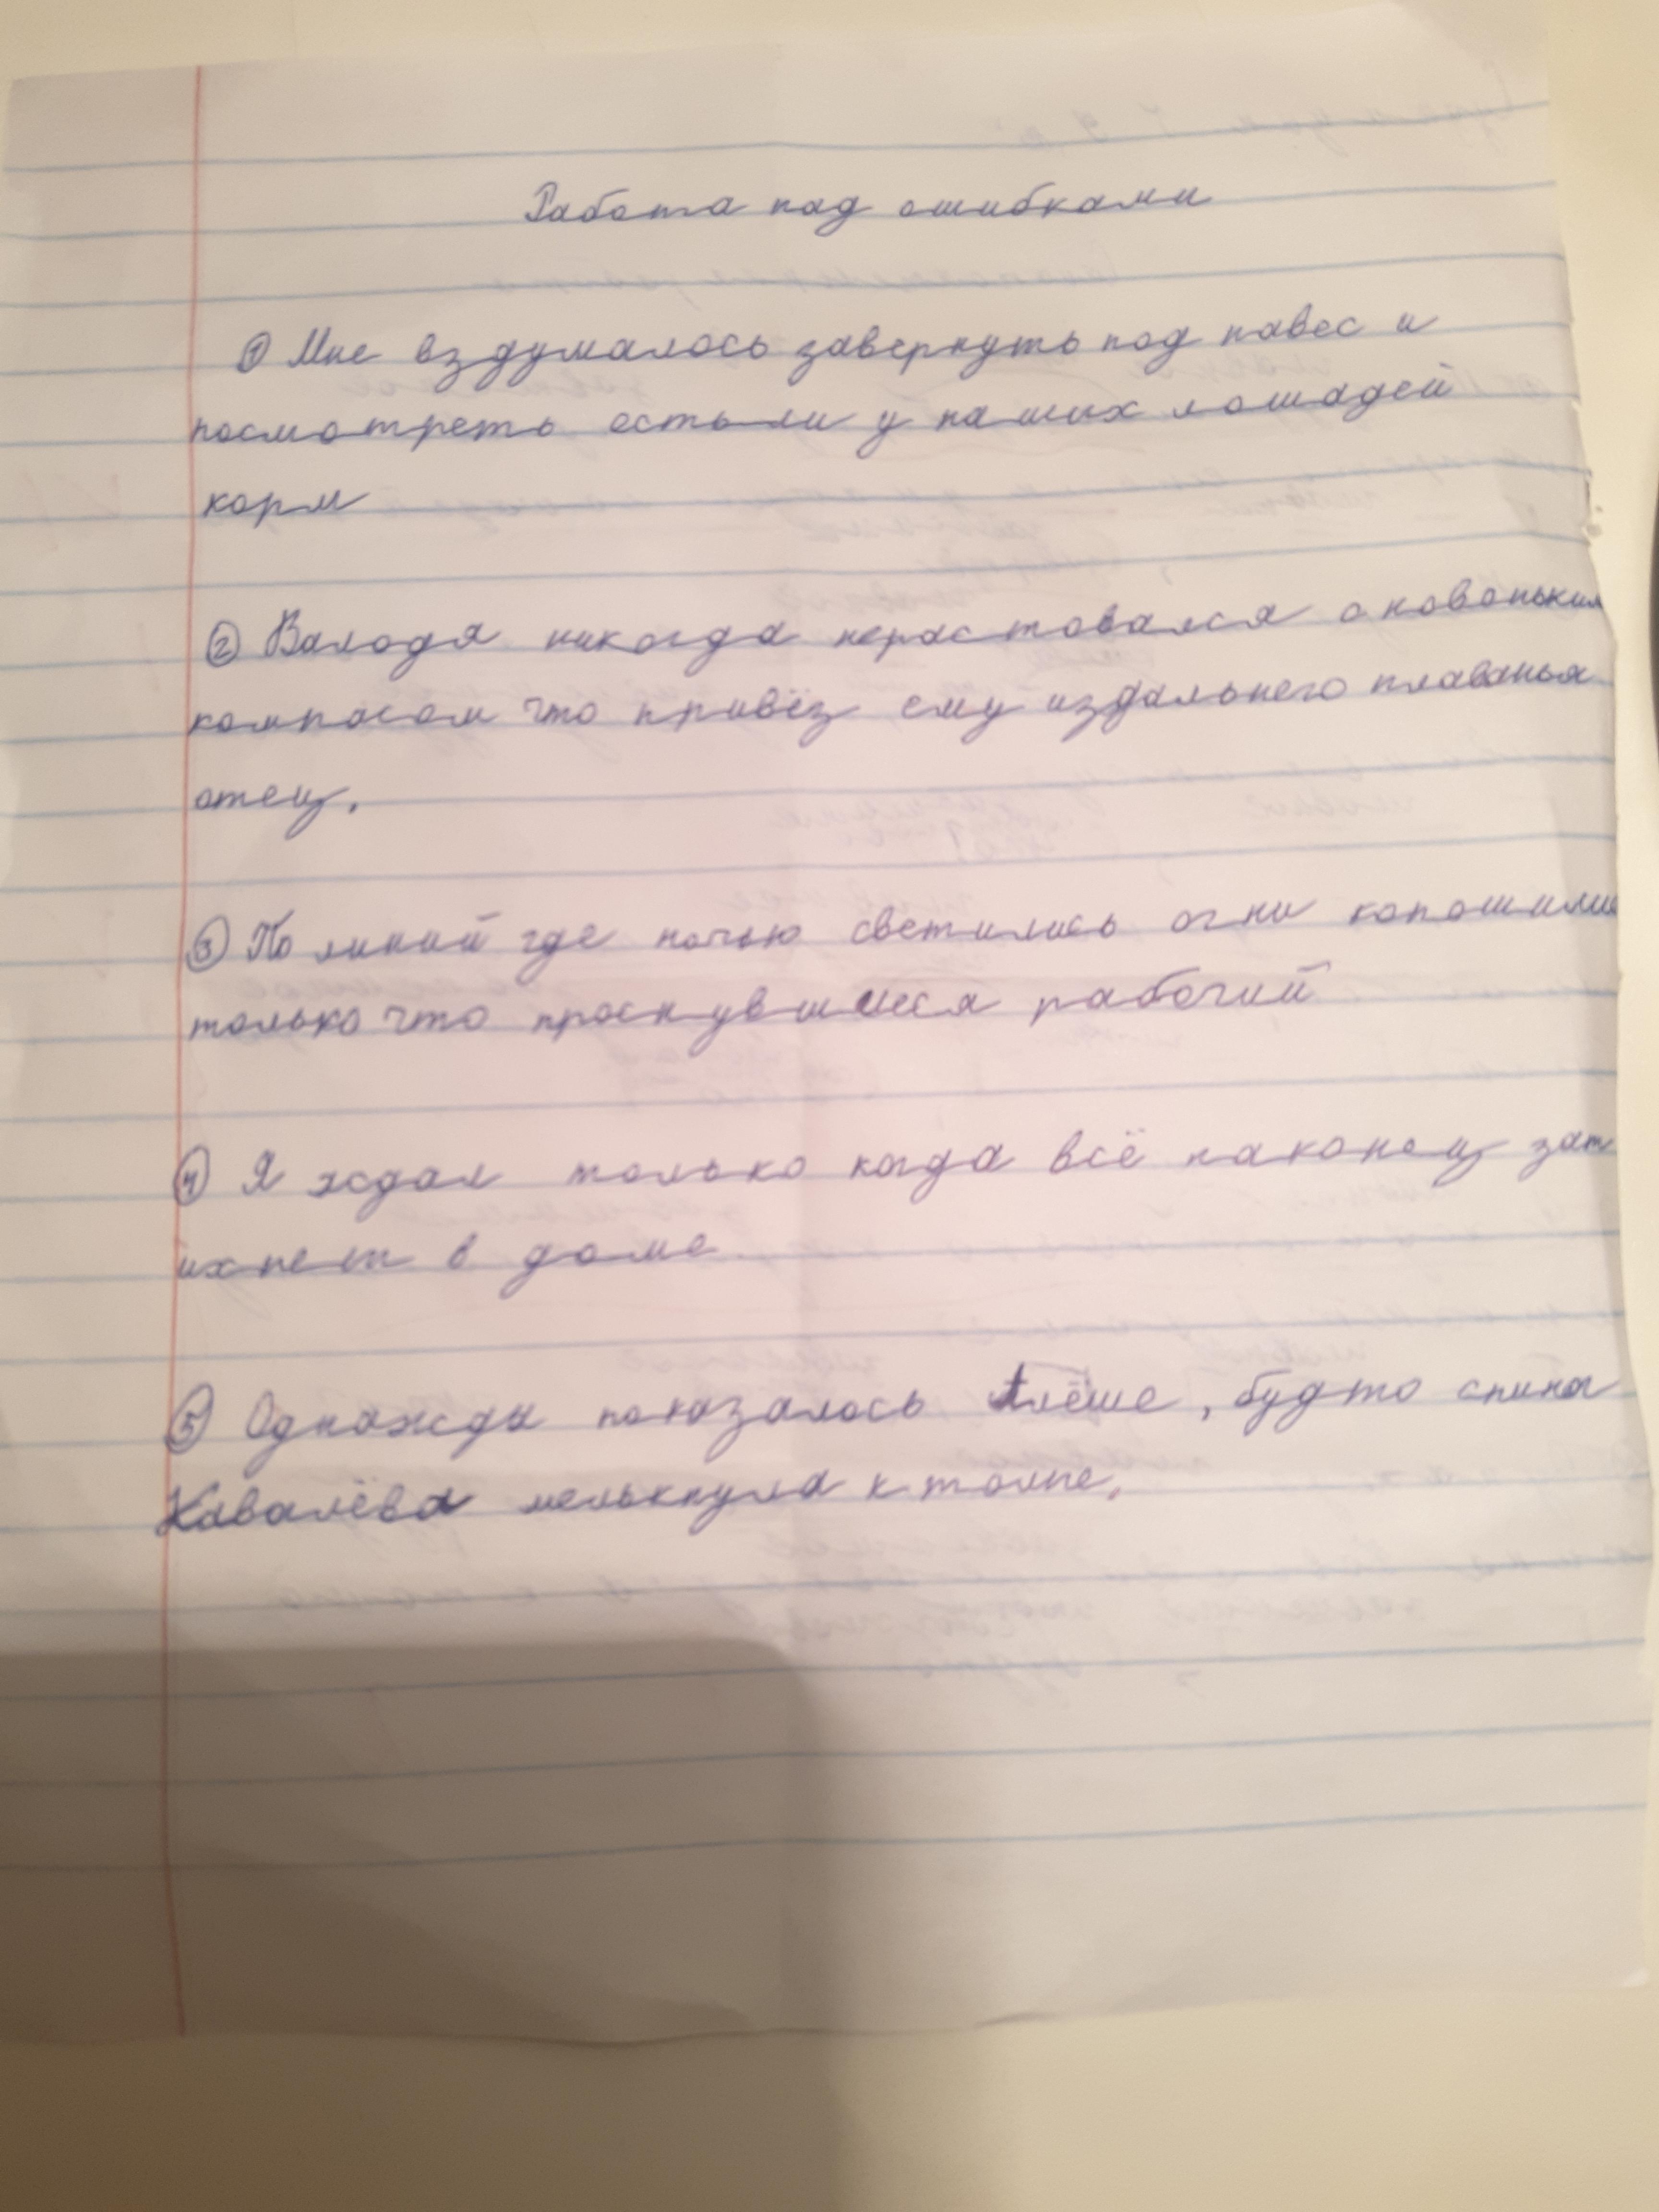 Работа над ошибками
① Мне вздумалось завернуть под навес и
посмотреть есть ли у наших лошадей
корм
② Валодя никогда нерастовался с новоньким
компасом что привёз ему издальнего плаванья
отец.
③ По линий где ночью светились огни копошили
только что проснувшиеся рабочий
④ Я ждал только когда всё наконец зат
ихнет в доме
⑤ Однажды показалось Алёше, будто спина
Кавалёва мелькнула к толпе.